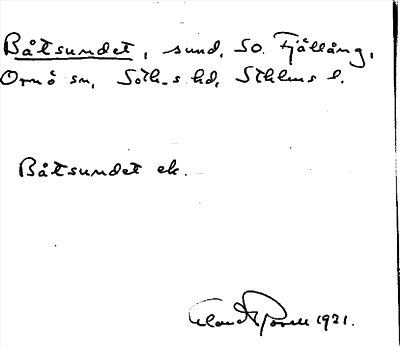 Båtsundet, sund, SO. Fjällång,
Ornö sn, Söth-s hd, Sthlms l.
Båtsundet ek.
1921.